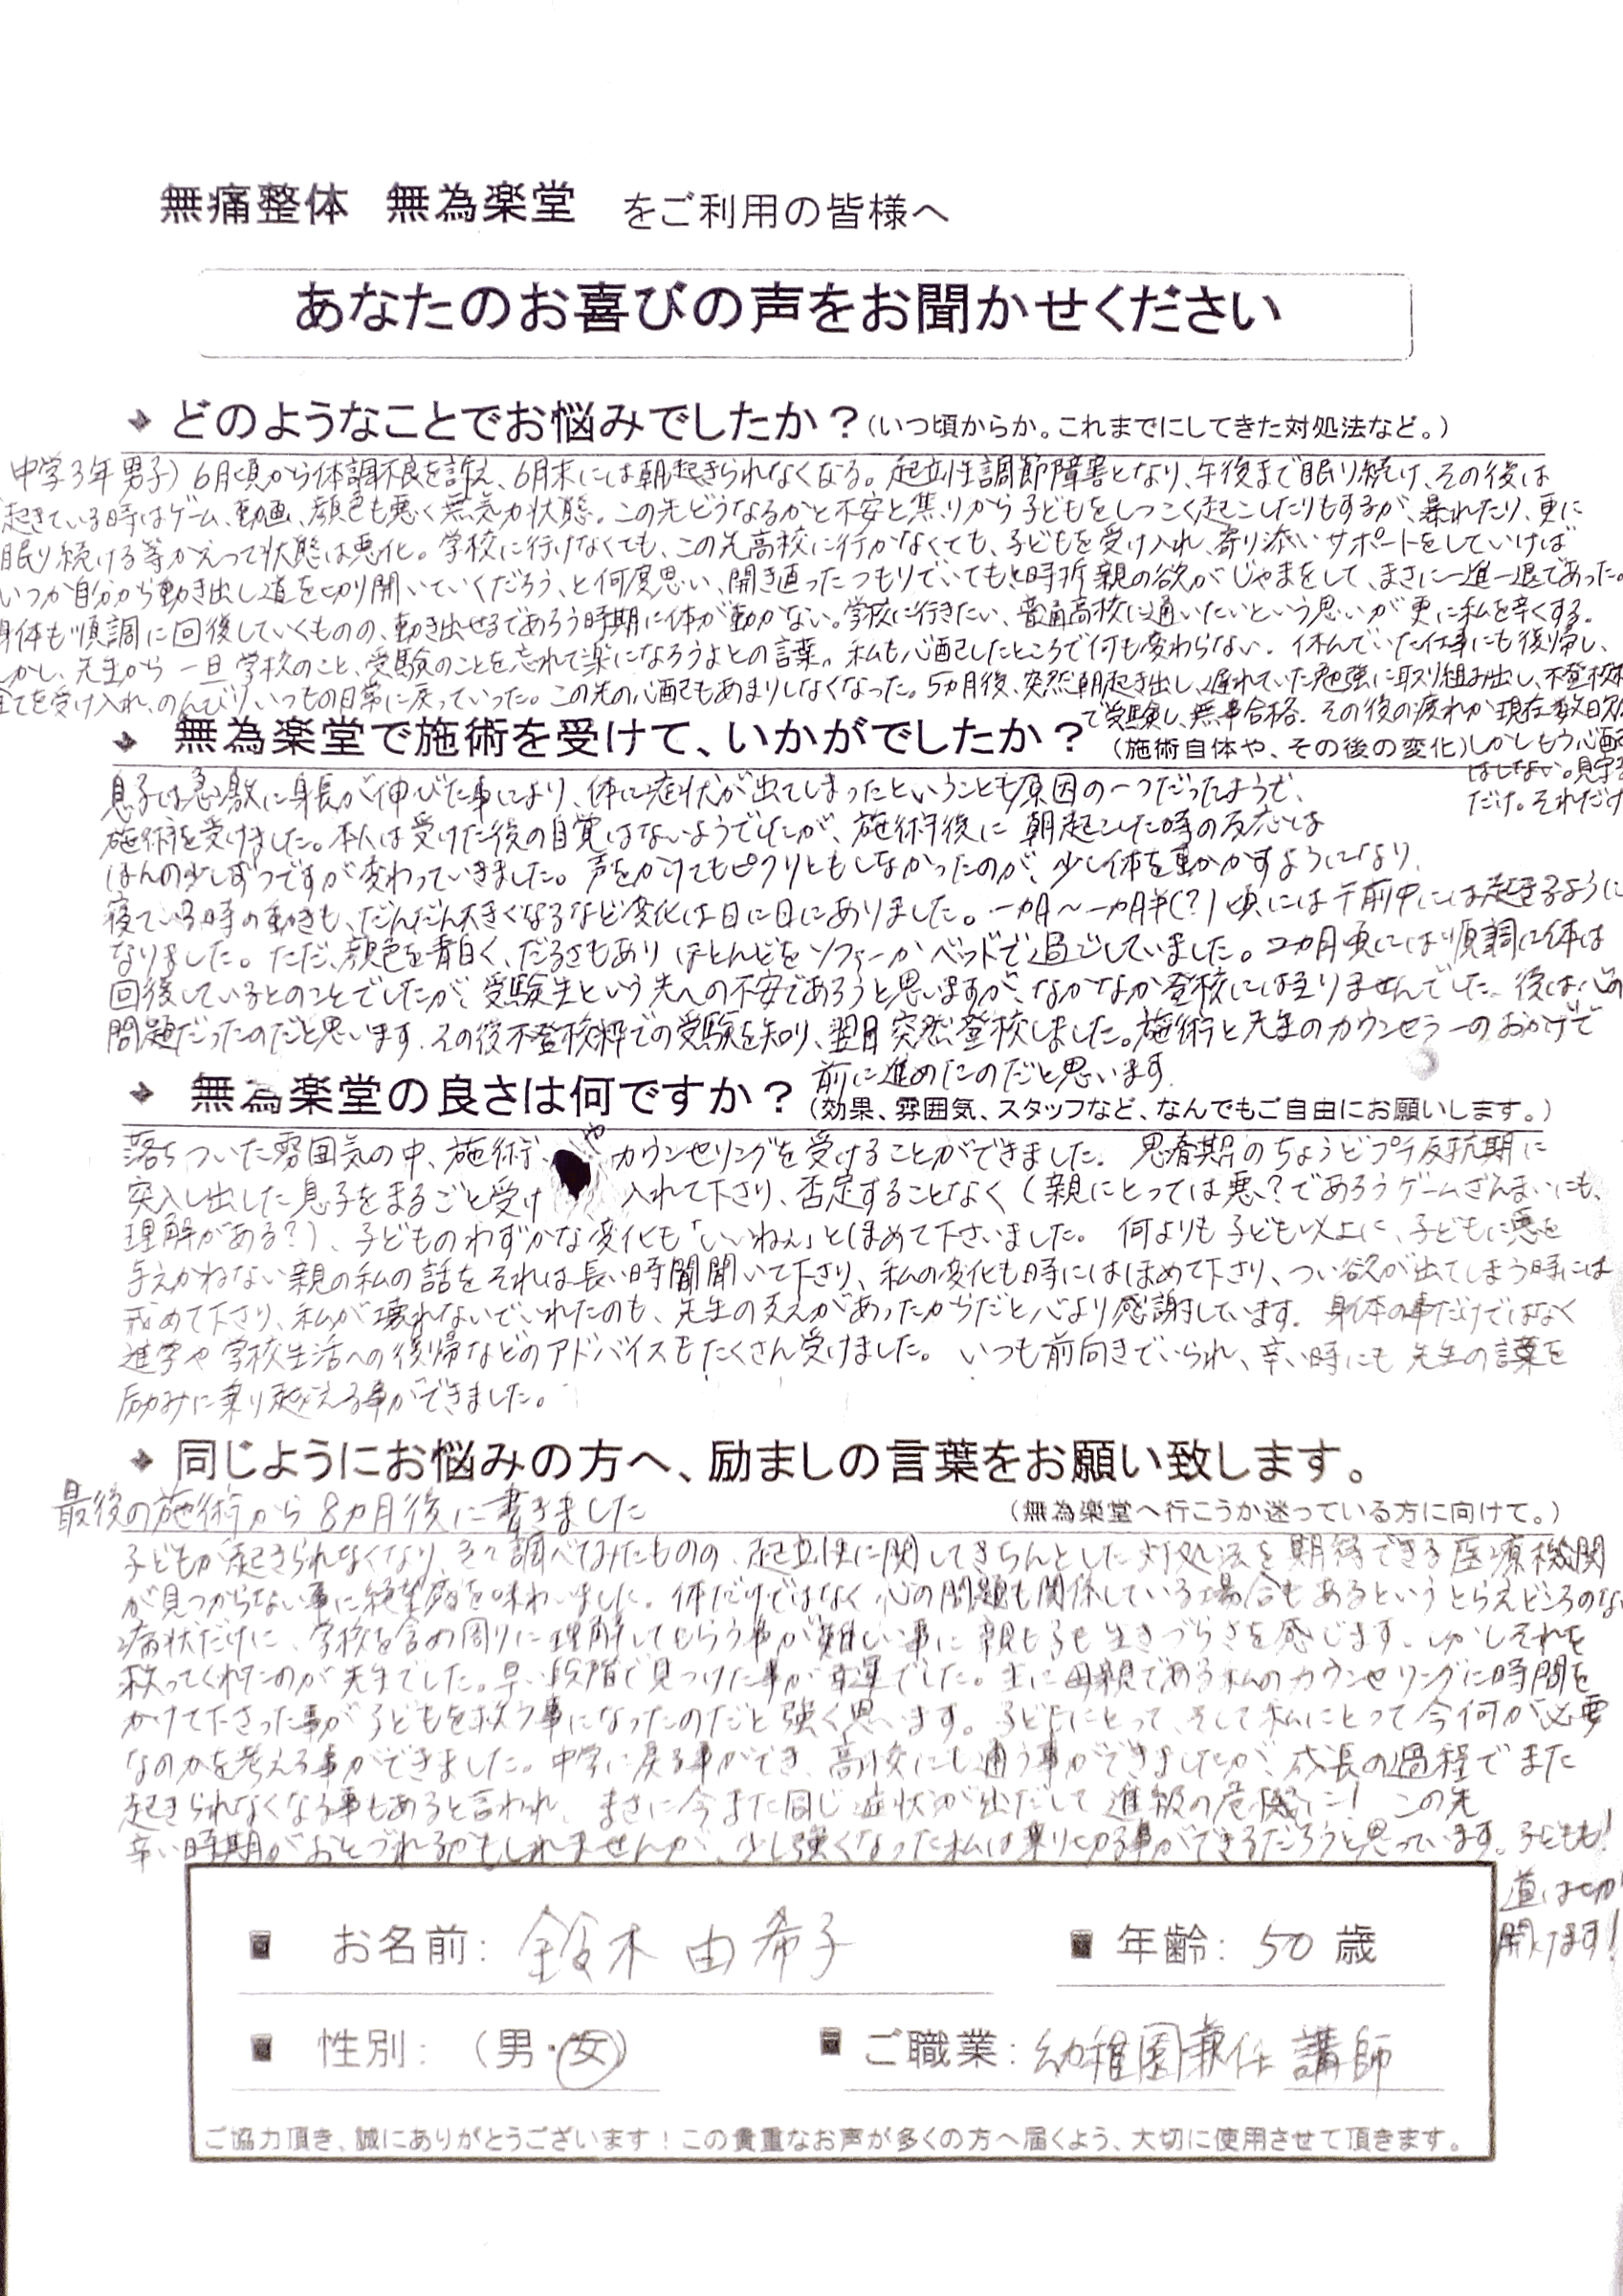 無痛整体 無為楽堂 をご利用の皆様へ
あなたのお喜びの声をお聞かせください
どのようなことでお悩みでしたか？(いつ頃からか。これまでにしてきた対処法など。)
中学3年男子) 6月頃から体調不良を訴え、6月末には朝起きられなくなる。起立性調節障害となり、午後まで眠り続け、その後は
起きている時はゲーム、動画、顔色も悪く無気力状態。この先どうなるかと不安と焦りから子どもをしつこく起こしたりもするが、暴れたり、更に
眠り続ける等かえって状態は悪化。学校に行けなくても、この先高校に行かなくても、子どもを受け入れ、寄り添いサポートをしていけば
いつか自分から動き出し道を切り開いていくだろう、と何度思い、開き直ったつもりでいても時折親の欲がじゃまをして、まさに一進一退であった。
身体も順調に回復していくものの、動き出せるであろう時期に体が動かない。学校に行きたい、普通高校に通いたいという思いが更に私を辛くする。
しかし、先生から一旦学校のこと、受験のことを忘れて楽になろうよとの言葉。私も心配したところで何も変わらない。休んでいた仕事にも復帰し、
全てを受け入れ、のんびりいつもの日常に戻っていった。この先の心配もあまりしなくなった。5カ月後、突然朝起き出し、遅れていた勉強に取り組み出し、不登校枠
で受験し、無事合格。その後の疲れか現在数日欠
無為楽堂で施術を受けて、いかがでしたか？(施術自体や、その後の変化)しかしもう心配
はしない。見守る
だけ。それだけ
息子は急激に身長が伸びた事により、体に症状が出てしまったということも原因の一つだったようで、
施術を受けました。本人は受けた後の自覚はないようでしたが、施術後に朝起こした時の反応は
ほんの少しずつですが変わっていきました。声をかけてもピクリともしなかったのが、少し体を動かすようになり、
寝ている時の動きも、だんだん大きくなるなど変化は日に日にありました。一カ月～一カ月半(?)頃には午前中には起きるように
なりました。ただ、顔色を青白く、だるさもありほとんどをソファーかベッドで過ごしていました。2カ月頃には順調に体は
回復しているとのことでしたが、受験生という先への不安であろうと思いますが、なかなか登校には至りませんでした。後は心の
問題だったのだと思います。その後不登校枠での受験を知り、翌日突然登校しました。施術と先生のカウンセラーのおかげで
前に進めたのだと思います。
無為楽堂の良さは何ですか？(効果、雰囲気、スタッフなど、なんでもご自由にお願いします。)
落ちついた雰囲気の中、施術やカウンセリングを受けることができました。思春期のちょうどプチ反抗期に
突入し出した息子をまるごと受け入れて下さり、否定することなく(親にとっては悪?であろうゲームざんまいにも、
理解がある?)、子どものわずかな変化も「いいねぇ」とほめて下さいました。何よりも子ども以上に、子どもに悪を
与えかねない親の私の話をそれは長い時間聞いて下さり、私の変化も時にはほめて下さり、つい欲が出てしまう時には
戒めて下さり、私が壊れないでいれたのも、先生の支えがあったからだと心より感謝しています。身体の事だけではなく
進学や学校生活への復帰などのアドバイスもたくさん受けました。いつも前向きでいられ、辛い時にも先生の言葉を
励みに乗り越える事ができました。
同じようにお悩みの方へ、励ましの言葉をお願い致します。
最後の施術から8カ月後に書きました
(無為楽堂へ行こうか迷っている方に向けて。)
子どもが起きられなくなり、色々調べてみたものの、起立性に関してきちんとした対処法を期待できる医療機関
が見つからない事に絶望感を味わいました。体だけではなく心の問題も関係している場合もあるというとらえどころのない
病状だけに、学校を含め周りに理解してもらう事が難しい事に親も子も生きづらさを感じます。しかしそれを
救ってくれたのが先生でした。早い段階で見つけた事が幸運でした。主に母親である私のカウンセリングに時間を
かけて下さった事が子どもを救う事になったのだと強く思います。子どもにとって、そして私にとって今何が必要
なのかを考える事ができました。中学に戻る事ができ、高校にも通う事ができましたが、成長の過程でまた
起きられなくなる事もあると言われ、まさに今また同じ症状が出だして進級の危機に！この先
辛い時期がおとづれるかもしれませんが、少し強くなった私は乗り切る事ができるだろうと思っています。子どもも！
道は切り
開けます！
お名前: 鈴木 由希子
年齢: 50 歳
性別: (男・女)
ご職業: 幼稚園兼任講師
ご協力頂き、誠にありがとうございます！この貴重なお声が多くの方へ届くよう、大切に使用させて頂きます。